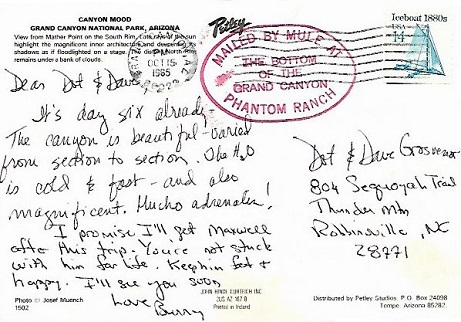 CANYON MOOD
GRAND CANYON NATIONAL PARK, ARIZONA
View from Mather Point on the South Rim, of the sun
highlight the magnificent inner architecture and the
shadows as if floodlighted on a stage. The distant North Rim
remains under a bank of clouds.
Petley
PM
OCT 15
1985
MAILED BY MULE AT
THE BOTTOM
OF THE
GRAND CANYON
PHANTOM RANCH
Iceboat 1880s
USA
14
Dear Dot & Dave
It's day six already -
The canyon is beautiful - varied
from section to section. The H2O
is cold & fast - and also
magnificent. Mucho adrenalin!
I promise I'll get Maxwell
after this trip. You're not stuck
with him for life. Keep him fat &
happy. I'll see you soon
Love
Bunny
Dot & Dave Grosvenor
804 Sequoyah Trail
Thunder Mtn
Robbinsville, NC
28771
Photo © Josef Muench
1502
JOHN HINDE CURTEICH INC
2US AZ 167 B
Printed in Ireland
Distributed by Petley Studios, P.O. Box 24098
Tempe, Arizona 85282.